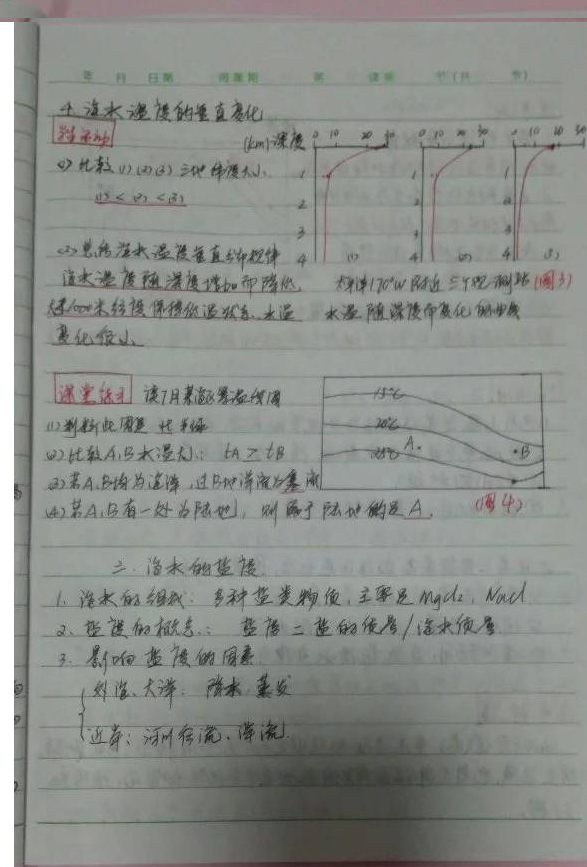 年 月 日第 周星期 第 课第 节(共 节)
4. 海水温度的垂直变化
(km)深度 0 10 20 30 0 10 20 30 0 10 20 30
(1) 比较(1)(2)(3)三地纬度大小
(1) < (2) < (3)
1 2 3 4 (1)
1 2 3 4 (2)
1 2 3 4 (3)
(2) 总结海水温度垂直分布规律
海水温度随深度增加而降低,
1000米 保持低温状态、水温
变化很小
170°W附近三个观测站(图3)
水温随深度而变化的曲线
课堂练习 读7月某海区等温线图
(1) 判断此图是 北半球
(2) 比较A,B水温大小: tA > tB
(3) 若A,B均为海洋,过B地洋流为寒流
(4) 若A,B有一处为陆地,则属于陆地的是A.
15℃
20℃
25℃
A
B
(图4)
二. 海水的盐度
1. 海水的组成: 多种盐类物质, 主要是MgCl2, NaCl
2. 盐度的概念: 盐度=盐的质量/海水质量
3. 影响盐度的因素
外海、大洋: 降水、蒸发
近岸: 河川径流、洋流.